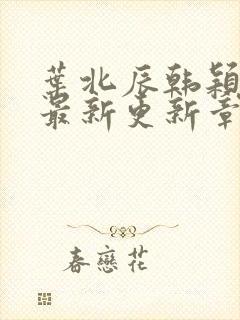 葉北辰韩穎
最新更新章
春戀花